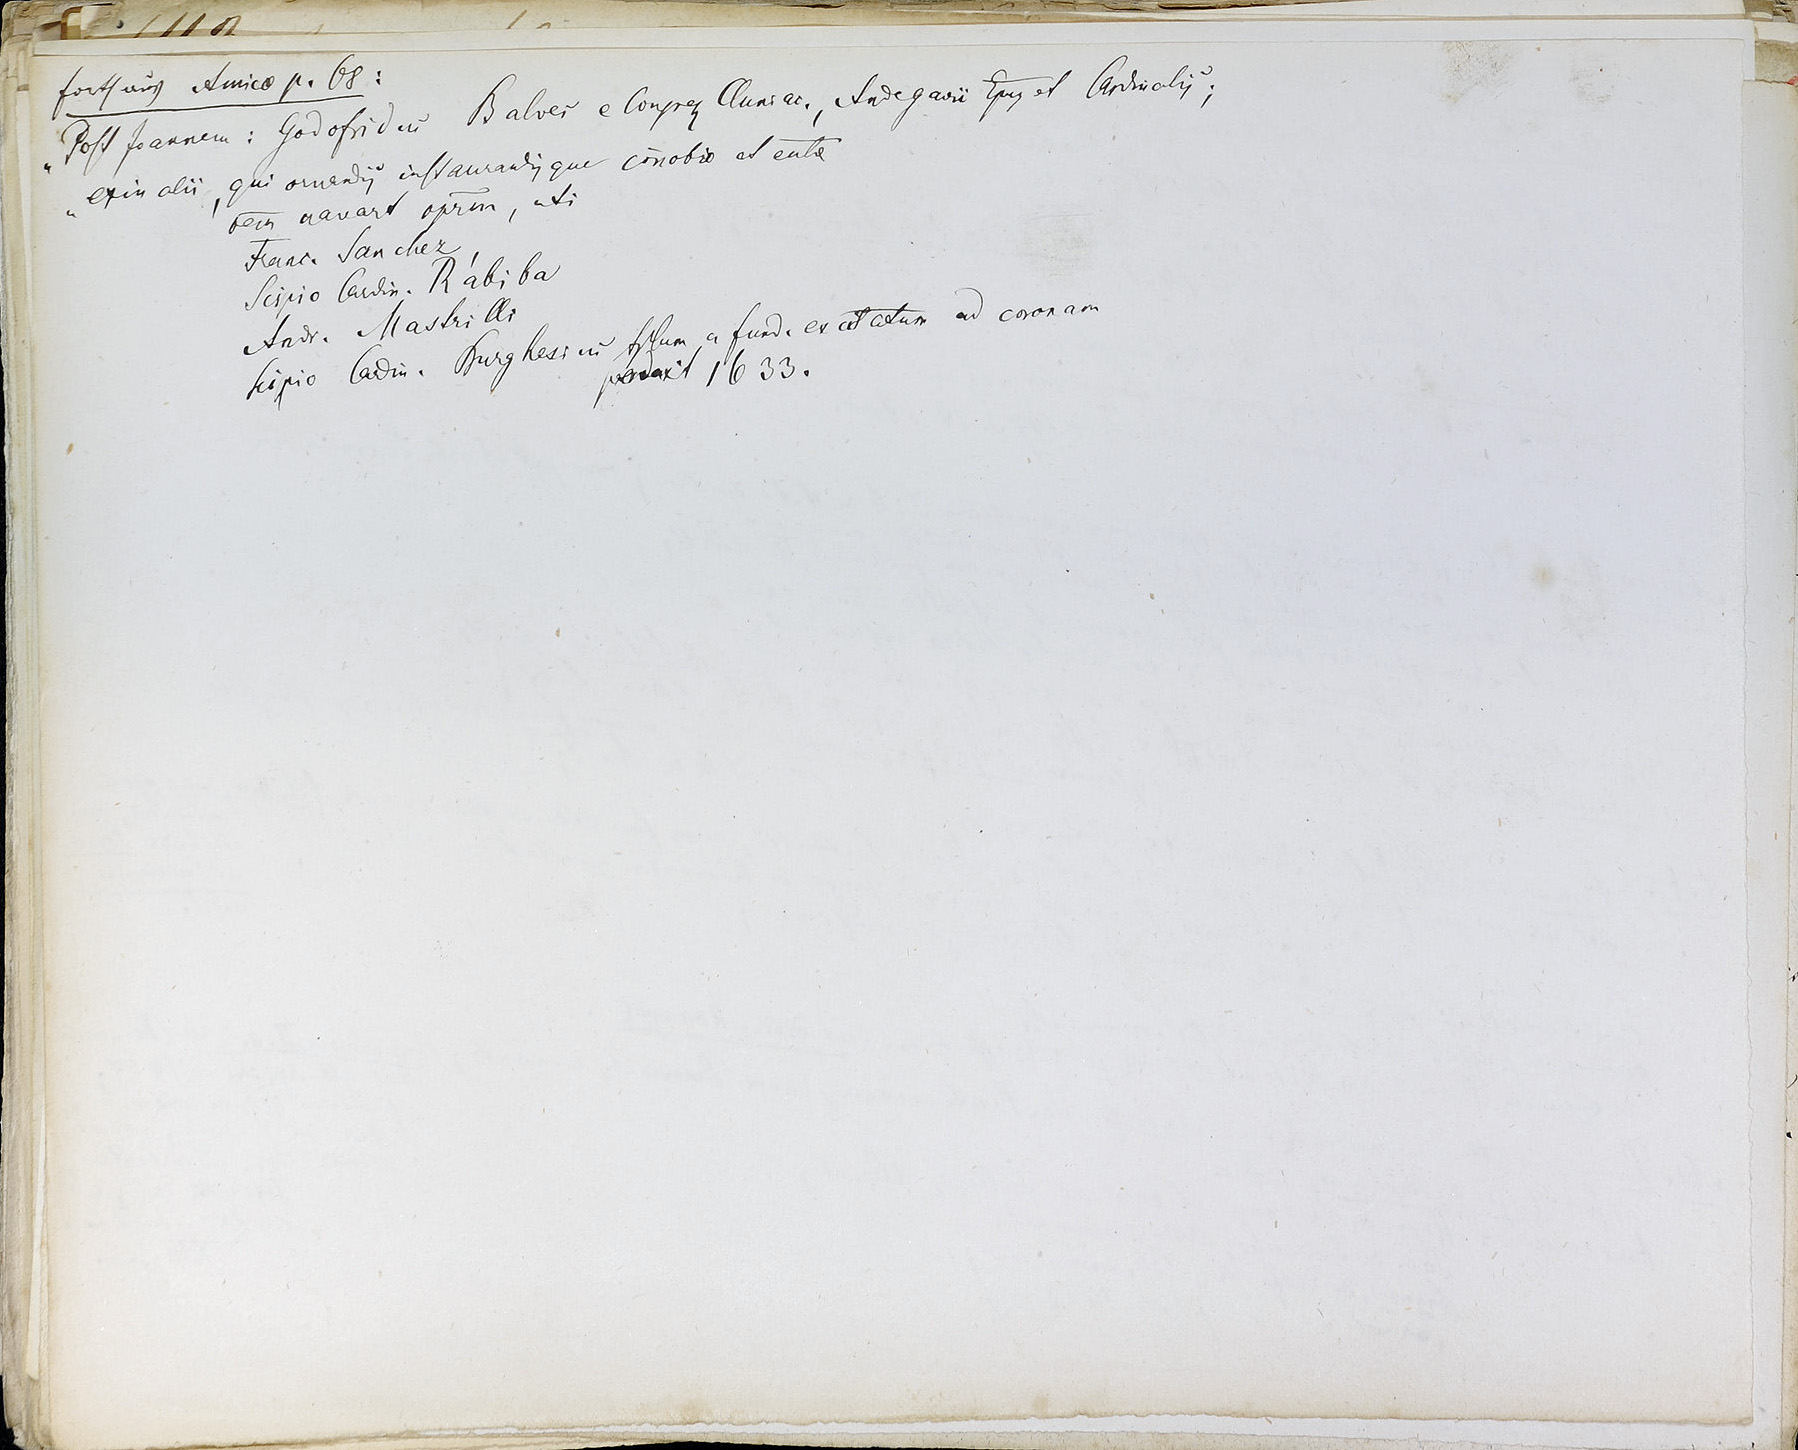 Fortsetzg Amico p. 68:
"Post Joannem: Godofridus Balves e Congreg Cluniac., Andegavii Epus et Cardinalis;
"exin alii, qui ornandis instaurandisque cönobio et
navart opram, uti
Franc. Sanchez,
Scipio Cardin. Rabiba
Andr. Mastrilli
Scipio Cardin. Burghesius a fund. excitatum ad coronam
1633.